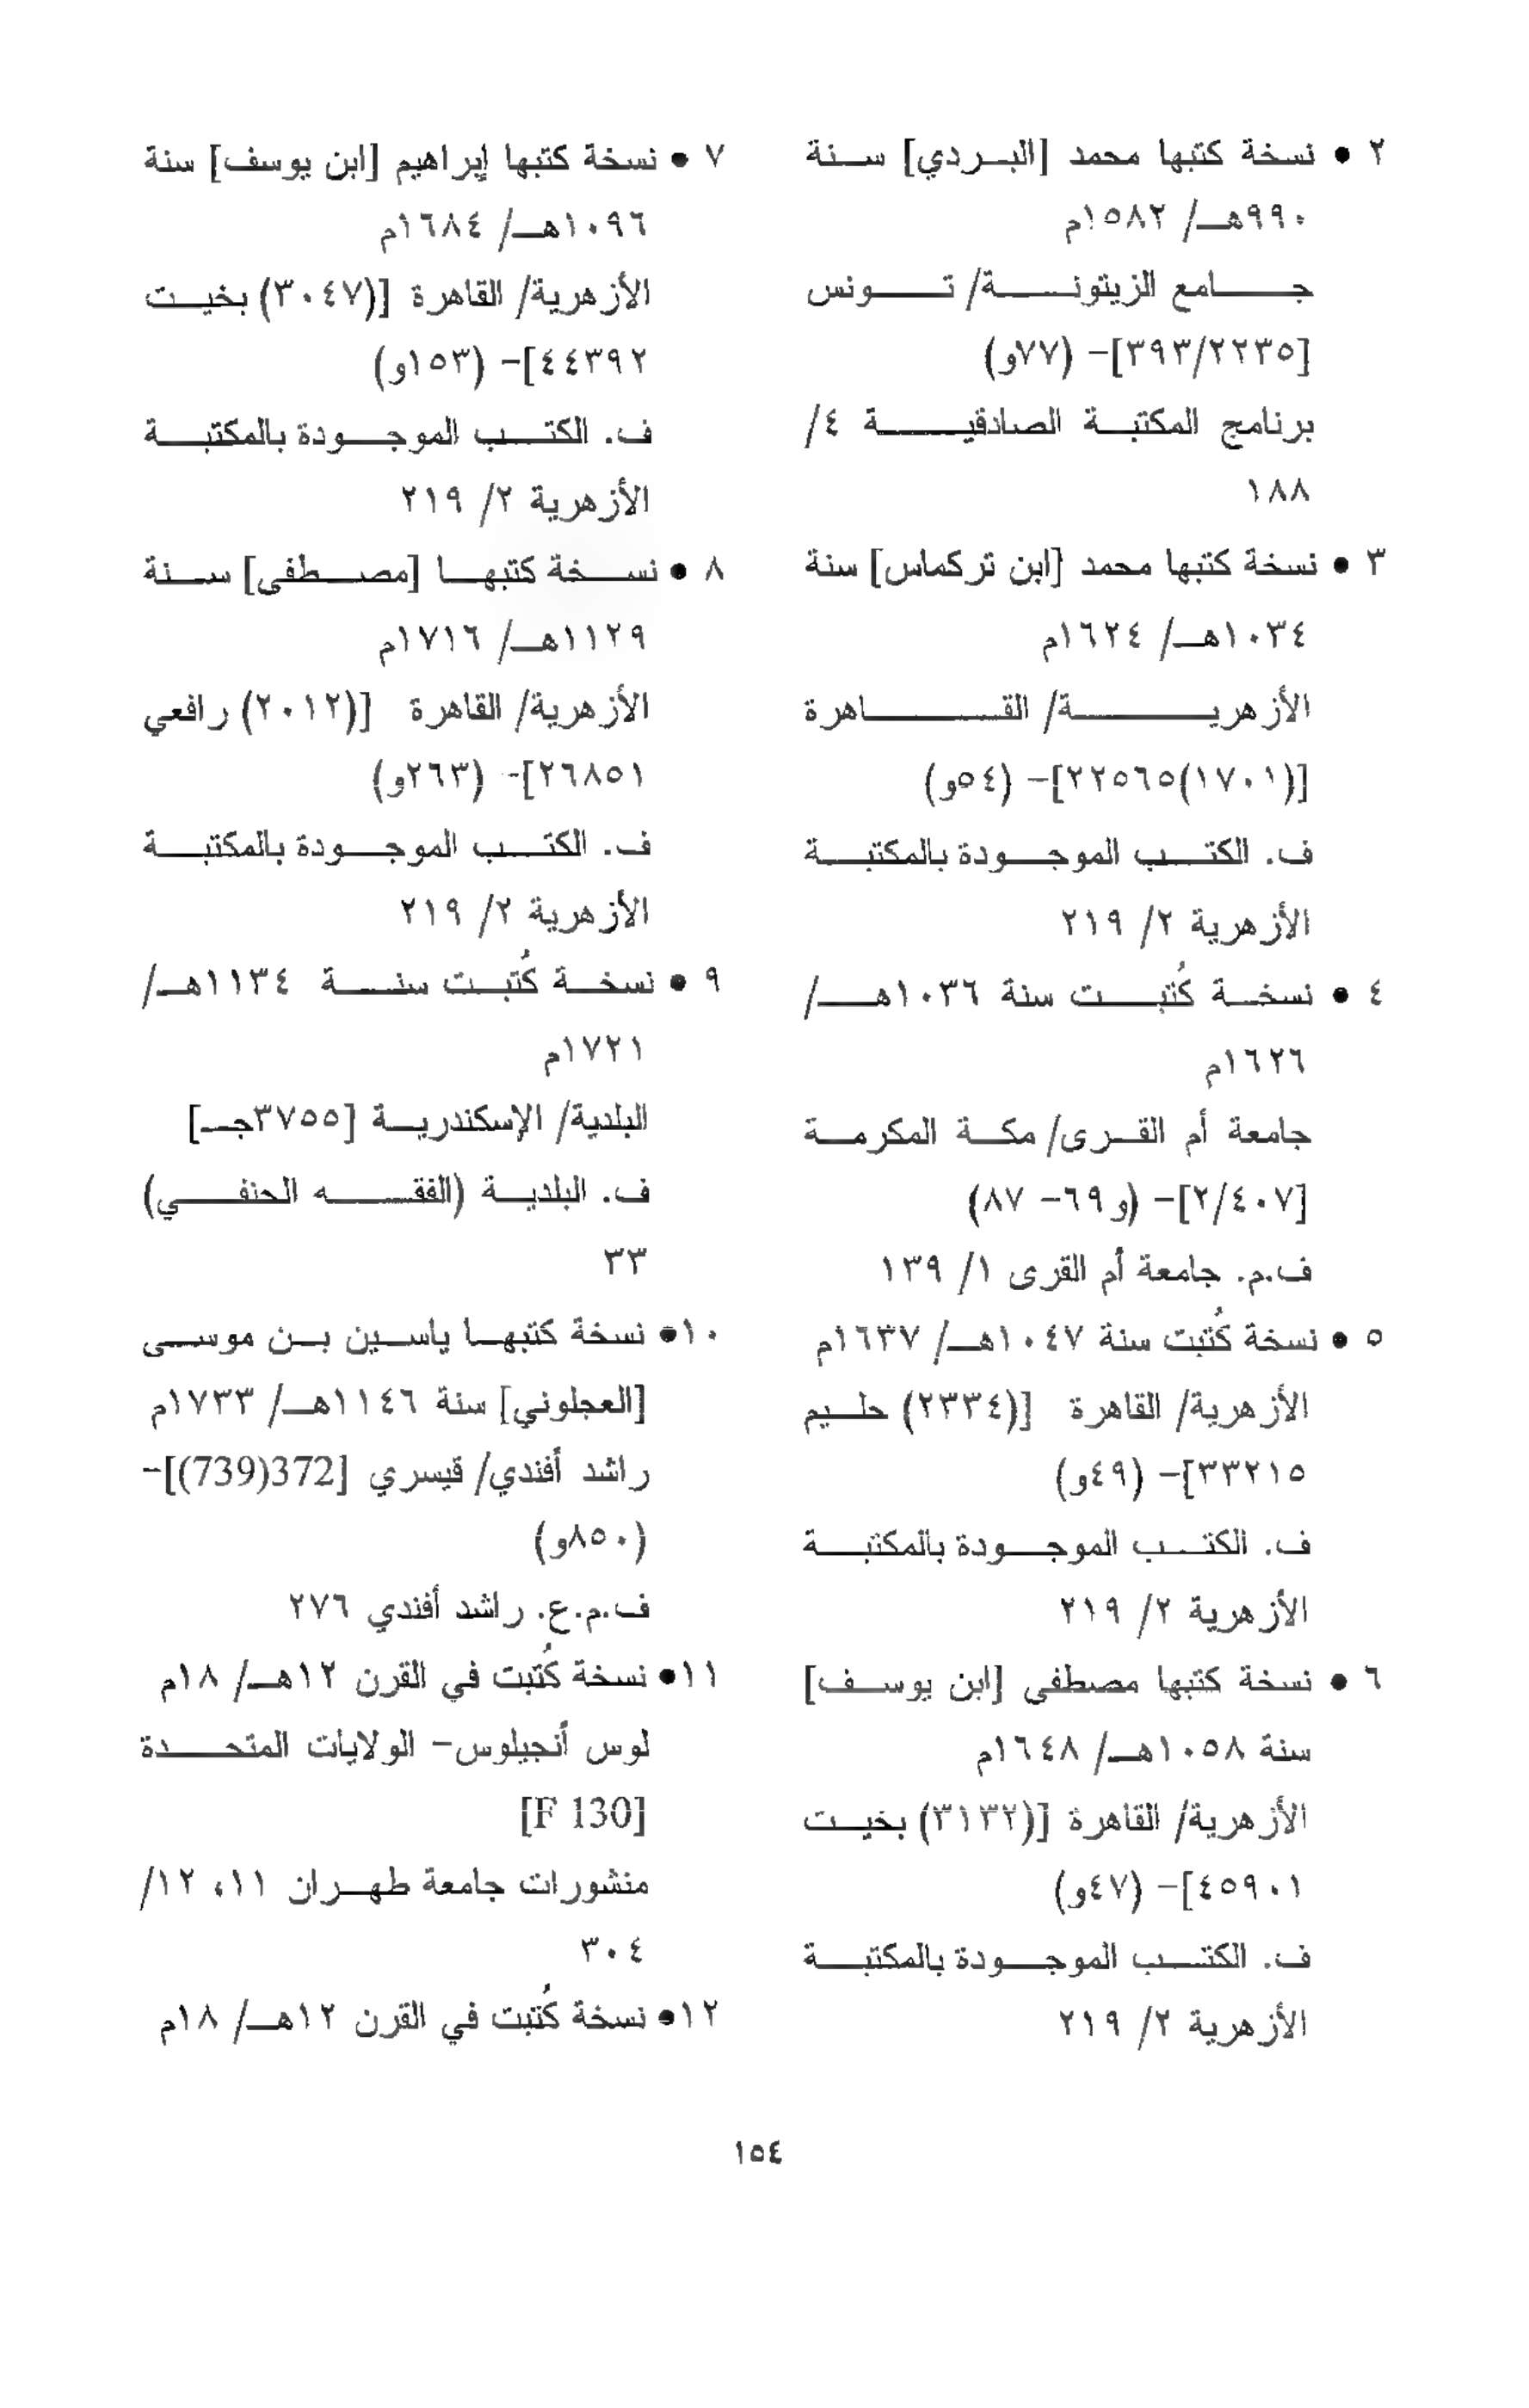 ٢ • نسخة كتبها محمد [البردي] سنة
٩٩٠هـ/ ١٥٨٢م
جامع الزيتونة/ تونس
[٣٩٣/٢٢٣٥]- (٧٧و)
برنامج المكتبة الصادقية ٤/
١٨٨
٣ • نسخة كتبها محمد [ابن تركماس] سنة
١٠٣٤هـ/ ١٦٢٤م
الأزهرية/ القاهرة
[(١٧٠١)٢٢٥٦٥]- (٥٤و)
ف. الكتب الموجودة بالمكتبة
الأزهرية ٢/ ٢١٩
٤ • نسخة كُتبت سنة ١٠٣٦هـ/
١٦٢٦م
جامعة أم القرى/ مكة المكرمة
[٢/٤٠٧]- (و٦٩- ٨٧)
ف.م. جامعة أم القرى ١/ ١٣٩
٥ • نسخة كُتبت سنة ١٠٤٧هـ/ ١٦٣٧م
الأزهرية/ القاهرة [(٢٣٣٤) حليم
٣٣٢١٥]- (٤٩و)
ف. الكتب الموجودة بالمكتبة
الأزهرية ٢/ ٢١٩
٦ • نسخة كتبها مصطفى [ابن يوسف]
سنة ١٠٥٨هـ/ ١٦٤٨م
الأزهرية/ القاهرة [(٣١٣٢) بخيت
٤٥٩٠١]- (٤٧و)
ف. الكتب الموجودة بالمكتبة
الأزهرية ٢/ ٢١٩
٧ • نسخة كتبها إبراهيم [ابن يوسف] سنة
١٠٩٦هـ/ ١٦٨٤م
الأزهرية/ القاهرة [(٣٠٤٧) بخيت
٤٤٣٩٢]- (١٥٣و)
ف. الكتب الموجودة بالمكتبة
الأزهرية ٢/ ٢١٩
٨ • نسخة كتبها [مصطفى] سنة
١١٢٩هـ/ ١٧١٦م
الأزهرية/ القاهرة [(٢٠١٢) رافعي
٢٦٨٥١]- (٢٦٣و)
ف. الكتب الموجودة بالمكتبة
الأزهرية ٢/ ٢١٩
٩ • نسخة كُتبت سنة ١١٣٤هـ/
١٧٢١م
البلدية/ الإسكندرية [٣٧٥٥جـ]
ف. البلدية (الفقه الحنفي)
٣٣
١٠• نسخة كتبها ياسين بن موسى
[العجلوني] سنة ١١٤٦هـ/ ١٧٣٣م
راشد أفندي/ قيسري [372(739)]-
(٨٥٠و)
ف.م.ع. راشد أفندي ٢٧٦
١١• نسخة كُتبت في القرن ١٢هـ/ ١٨م
لوس أنجيلوس- الولايات المتحدة
[F 130]
منشورات جامعة طهران ١١، ١٢/
٣٠٤
١٢• نسخة كُتبت في القرن ١٢هـ/ ١٨م
١٥٤